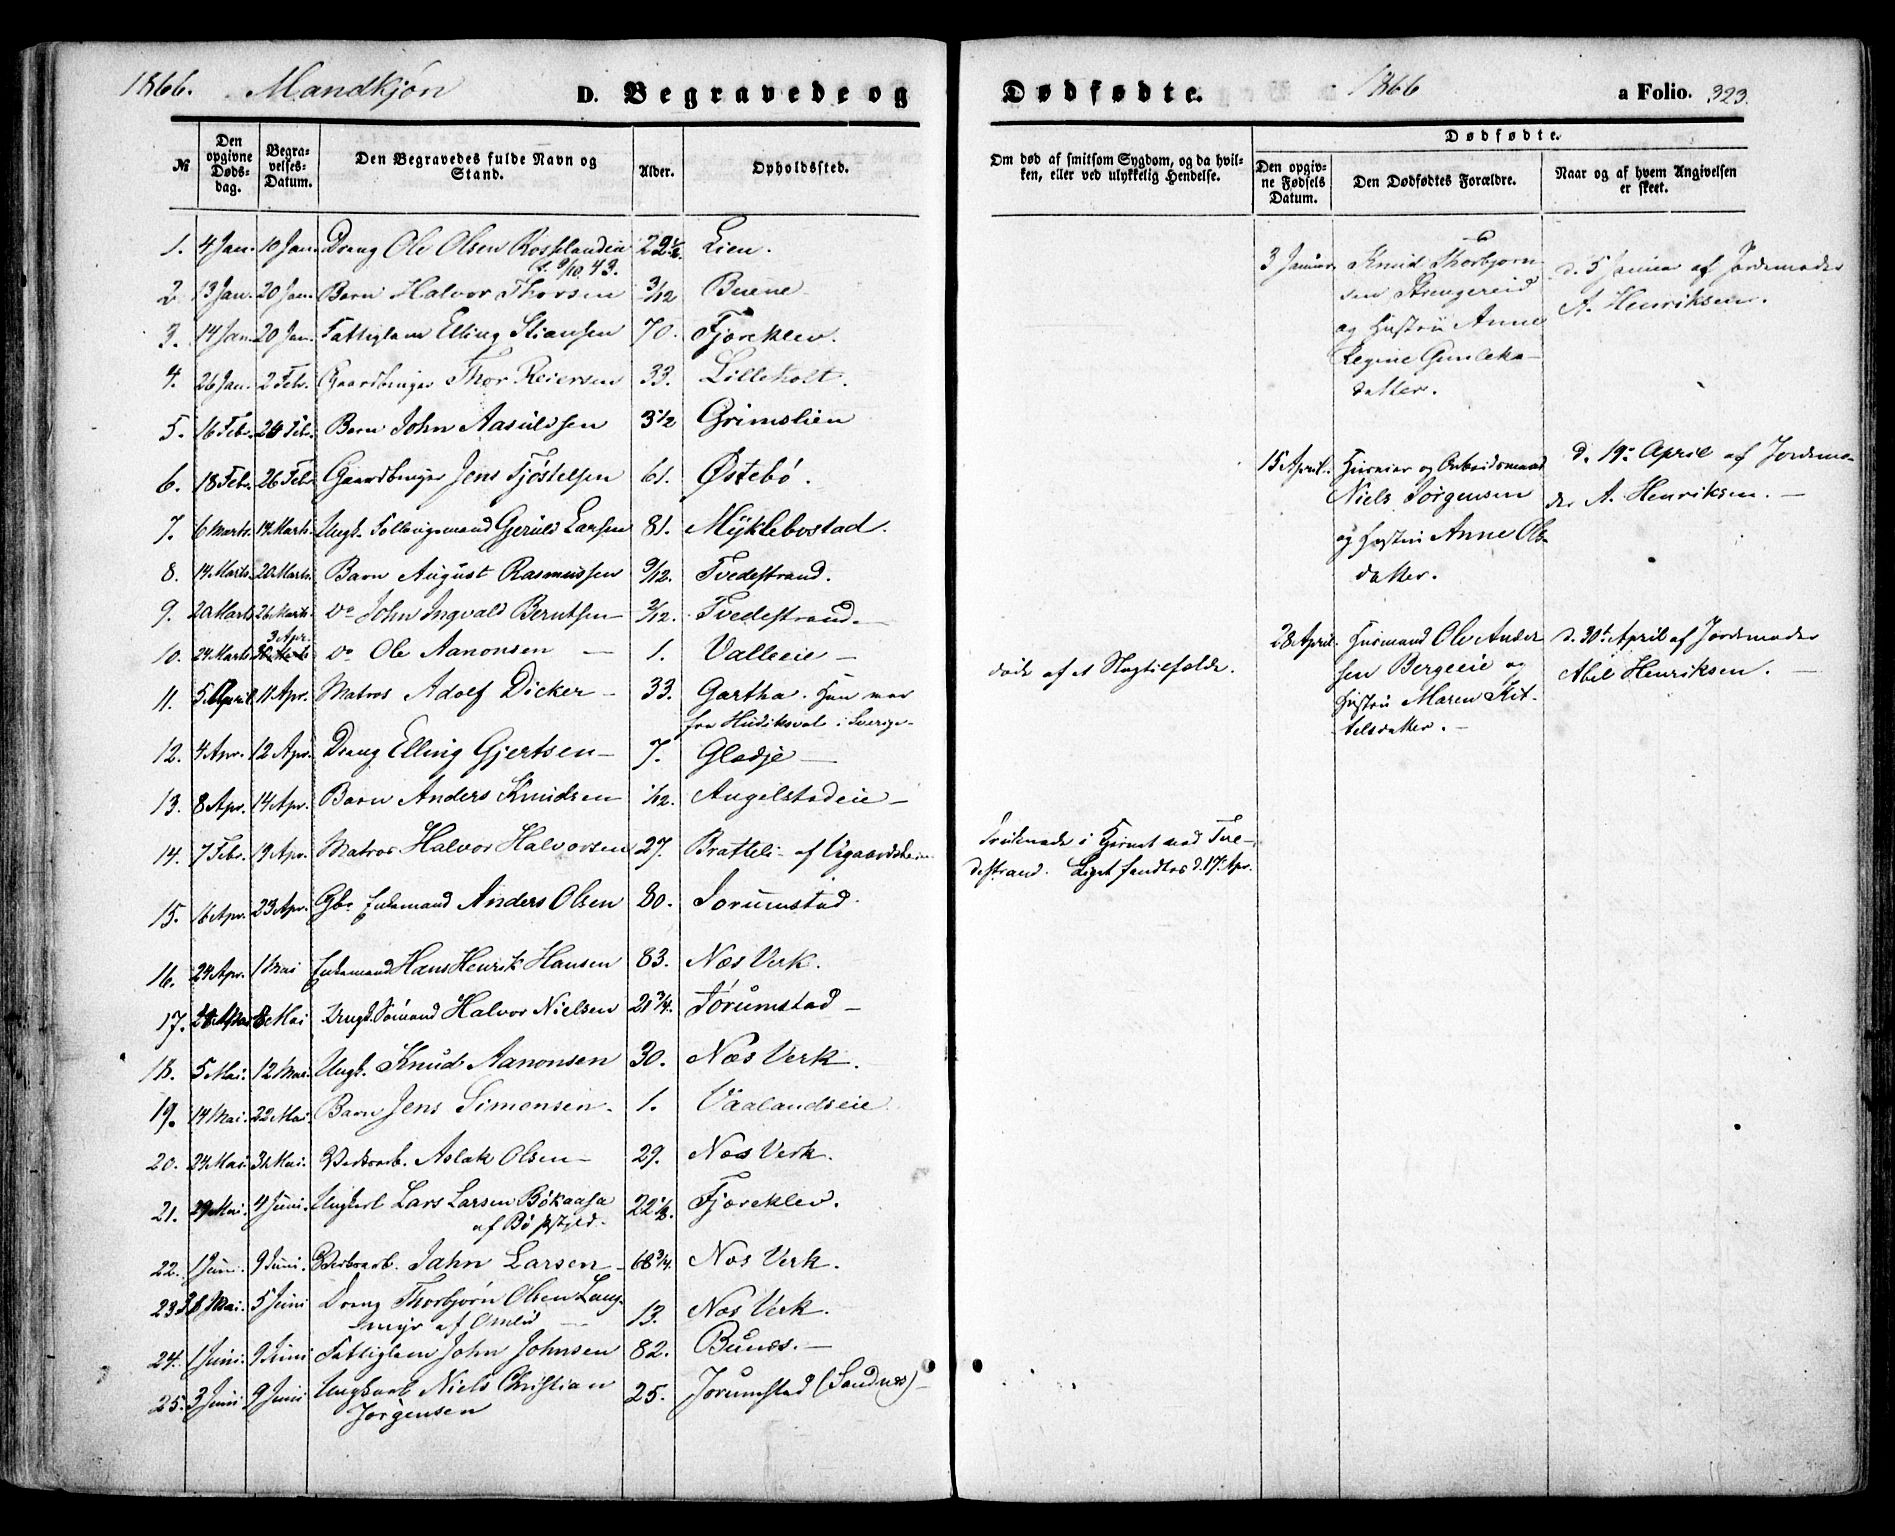 1866. Mandkjøn D. Begravede og Dødfødte. 1866 a Folio. 323.
№
Den opgivne Dødsdag.
Begravelses-Datum.
Den Begravedes fulde Navn og Stand.
Alder.
Opholdssted.
Om død af smitsom Sygdom, og da hvilken, eller ved ulykkelig Hendelse.
Dødfødte.
Den opgivne Fødsels Datum.
Den Dødfødtes Forældre.
Naar og af hvem Angivelsen er skeet.
1. 4 Jan. 10 Jan. Dreng Ole Olsen 22½. Lien.
f. 9/10 43.
2. 13 Jan. 20 Jan. Barn Halvor Thorsen 3/12 Buene
3. 14 Jan. 20 Jan. Fattiglem Elling Stiansen 70. Fjæreklev.
4. 26 Jan. 2 Feb. Gaardbruger Thor Reiersen 33. Lilleholt.
5. 16 Feb. 24 Feb. Barn John Aasuldsen 3½ Grimslien
6. 18 Feb. 26 Feb. Gaardbruger Jens Tjøstelsen 61. Østebø.
7. 6 Marts. 14 Marts. Ungk. Gjeruld Larsen 81. Myklebostad.
8. 14 Marts. 20 Marts. Barn August Rasmussen 9/12. Tvedestrand.
9. 20 Marts 26 Marts. do John Ingvald Berntsen 3/12. Tvedestrand.
3 Apr.
10. 24 Marts do Ole Aanonsen — 1. Valleeie —
11. 5 April 11 Apr. Matros Adolf Dicker — 33. Gartha. Han var døde af et Slagtilfælde.
fra Hudiksval i Sverige.
12. 4 Apr. 12 Apr. Dreng Elling Gjertsen — 7. Gladje —
13. 8 Apr. 14 Apr. Barn Anders Knudsen 1/12. Angelstadeie —
14. 7 Febr. 19 Apr. Matros Halvor Halvorsen 27. Bratteli af Vegaardsheien Druknede i Hjernet ved Tve-
destrand. Liget fandtes d. 17. Apr.
15. 16 Apr. 23 Apr. Gbr. Enkemand Anders Olsen 80. Jorumstad.
16. 24 Apr. 1 Mai Enkemand Hans Henrik Hansen 83. Næs Verk.
17. 8 Mai Ungk. Sømand Halvor Nielsen 21¾. Jorumstad —
18. 5 Mai. 12 Mai. Ungk. Knud Aanonsen 30. Næs Verk.
19. 14 Mai. 22 Mai. Barn Jens Simonsen. 1. Vaalandseie
20. 24 Mai. 31 Mai. Verksarb. Aslak Olsen — 29. Næs Verk.
21. 29 Mai. 4 Juni. Ungkarl Lars Larsen Bøkaasa 22½. Fjæreklev.
af Bø Pstgjeld.
22. 1 Juni. 9 Juni. Verksarb. Jahn Larsen — 68¾. Næs Verk.
23. 31 Mai. 5 Juni Dreng Thorbjørn Olsen Lang-
myr af Omlid — 13. Næs Verk.
24. 1 Juni. 9 Juni Fattiglem John Johnsen 82. Bunæs. —
25. 3 Juni 9 Juni Ungkarl Niels Christian 25. Jorumstad (Sandnæs) —
Jørgensen
3 Januar Knud Thorbjørn- d. 5 Januar af Jordemoder
sen Strengereid A. Henriksen.
og Hustru Anne
Regine Gunleks-
datter.
15 April. Husmand og Arbeidsmand d. 19de April af Jordemo-
Niels Jørgensen der A. Henriksen. —
og Hustru Anne Ols-
datter.
28 April. Husmand Ole Ander- d. 30te April af Jordemoder
sen Bergeeie og Abel Henriksen. —
Hustru Maren Kit-
telsdatter. —